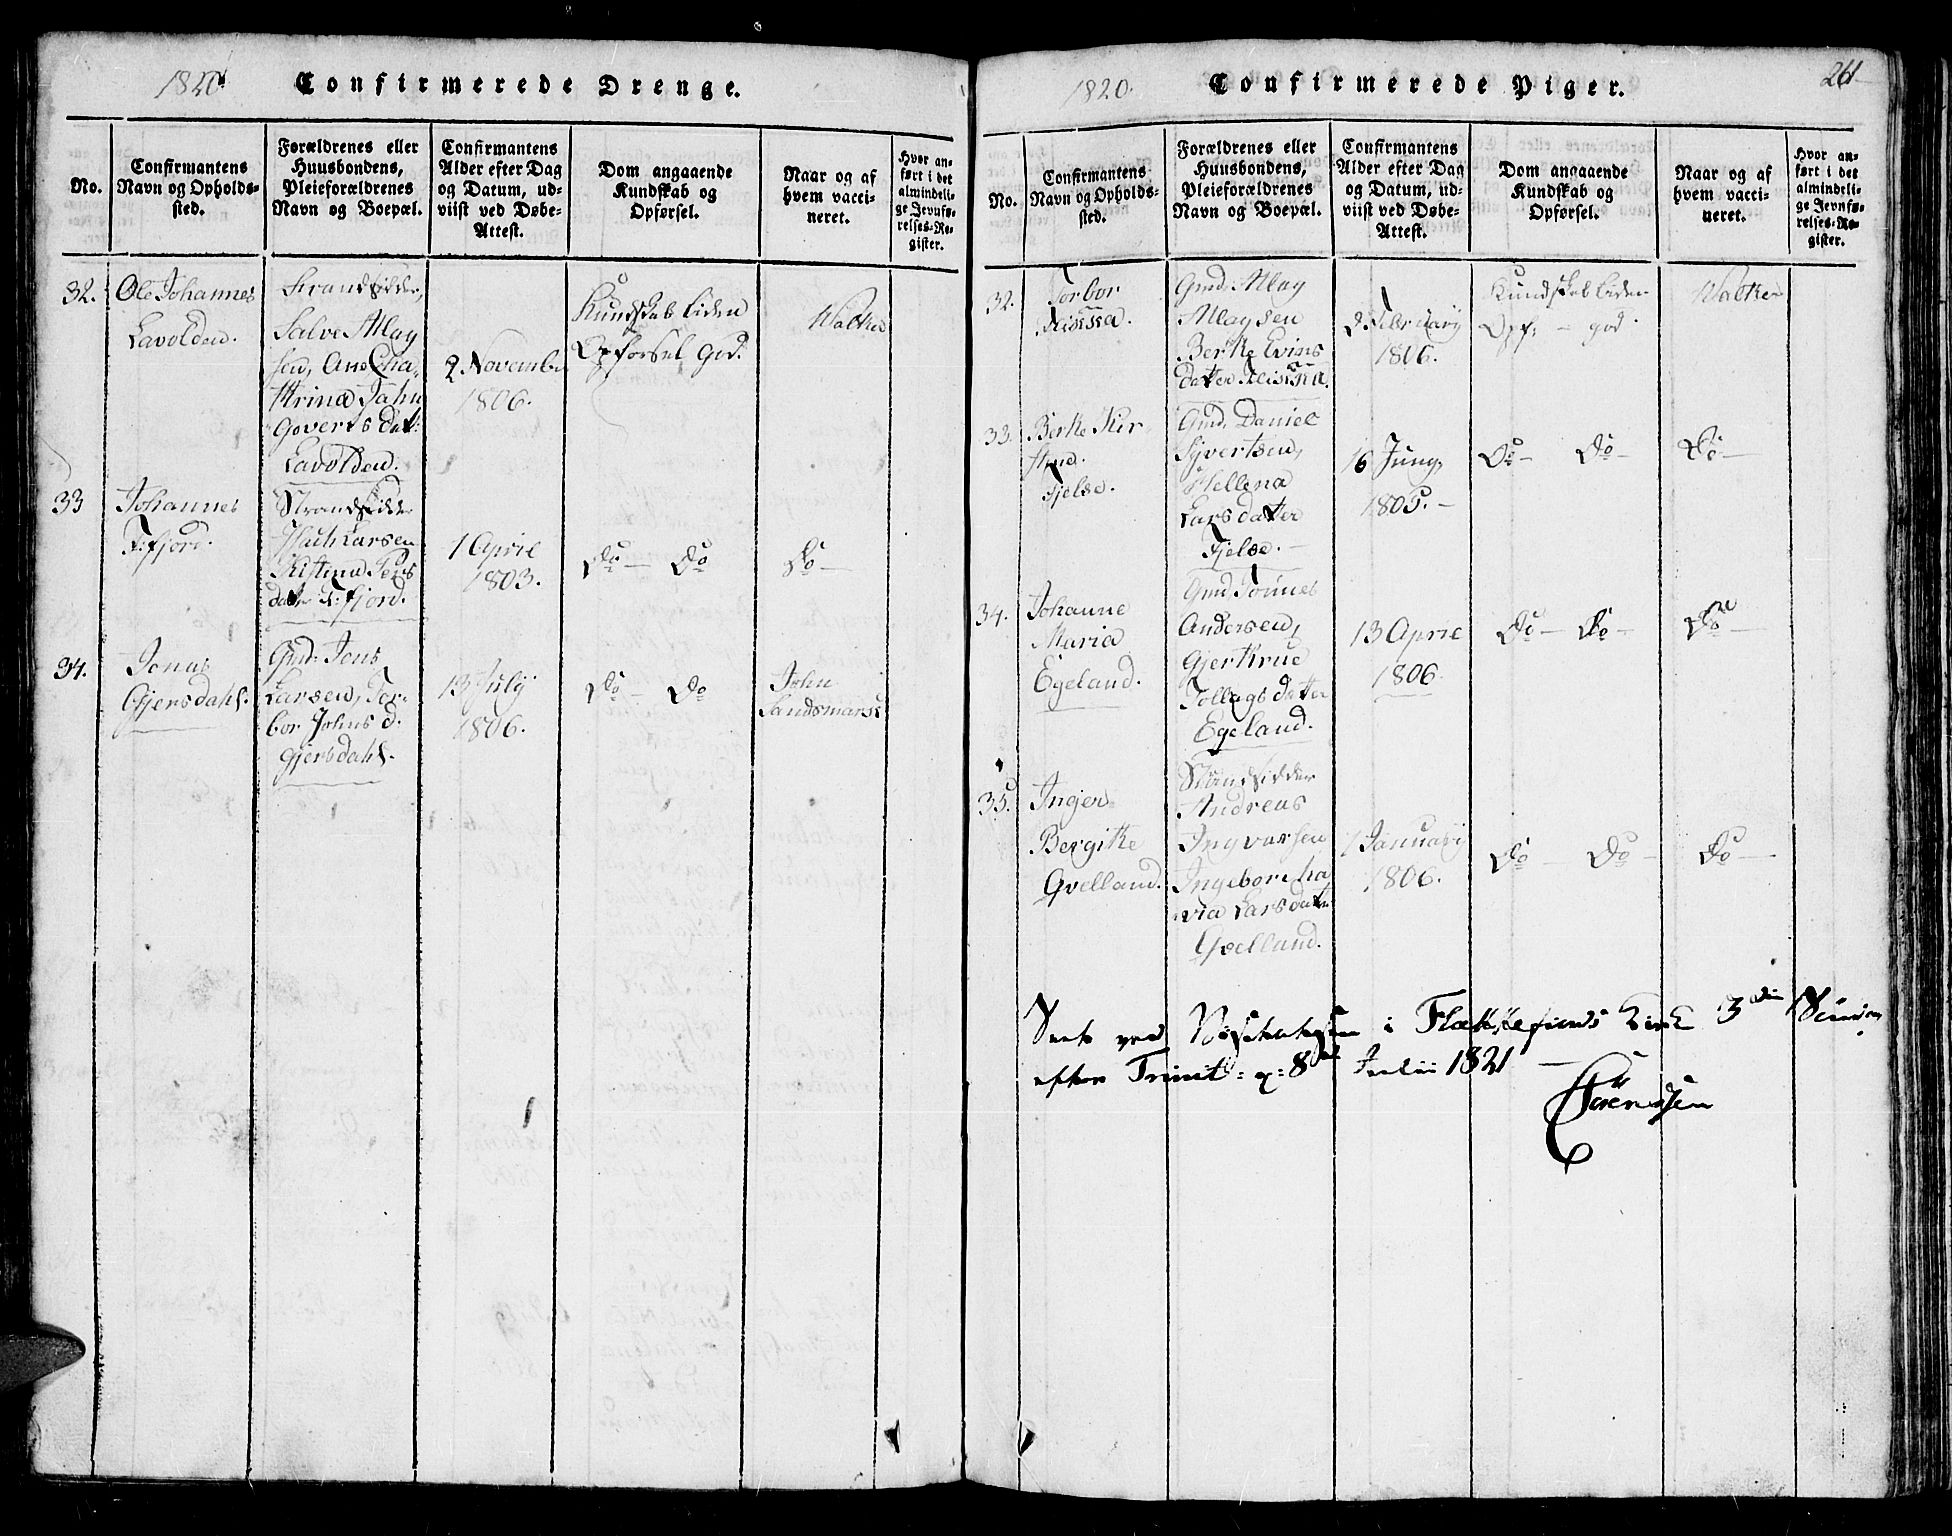 1820
Confirmerede Drenge.
No.
Confirmantens
Navn og Opholds-
sted.
Forældrenes eller
Huusbondens,
Pleieforældrenes
Navn og Boepæl.
Confirmantens
Alder efter Dag
og Datum, ud-
viist ved Døbe-
Attest.
Dom angaaende
Kundskab og
Opførsel.
Naar og af
hvem vacci-
neret.
Hvor an-
ført i det
almindeli-
ge Jevnfø-
relses-Re-
gister.
32.
Ole Johannes
Lavolden.
Strandsidder,
Salve Allag
sen, Ane Cha-
thrina Jahn
Goverts dat:
Lavolden.
2 November
1806.
Kundskab liden
Opførsel God.
Walke
33
Johannes
F:fjord.
Strandsidder
Larsen
Kistina Pers
datter F:fjord.
1 April
1803.
Do — Do
Do —
34.
Jonas
Gjersdahl.
Gmd. Jons
Larsen, Tor-
bor Johns d.
Gjersdahl.
13 July
1806.
Do — Do
John
Sandsmark
1820.
Confirmerede Piger.
261
No.
Confirmantens
Navn og Opholds-
sted.
Forældrenes eller
Huusbondens,
Pleieforældrenes
Navn og Boepæl.
Confirmantens
Alder efter Dag
og Datum, ud-
viist ved Døbe-
Attest.
Dom angaaende
Kundskab og
Opførsel.
Naar og af
hvem vacci-
neret.
Hvor an-
ført i det
almindeli-
ge Jevnfø-
relses-Re-
gister.
32.
Torbor
Gmd. Allag
Allagsen
Berthe Evins
datter
Februarij
1806.
Kundskab liden
Opf: — god.
Walker
33.
Berthe Kir-
stine
Fjelse.
Gmd. Daniel
Syvertsen,
Hellena
Lars datter
Fjelse. —
16 Juny,
1805. —
Do — Do —
Do —
34.
Johanne
Maria
Egeland.
Gmd. Tønnes
Andersen,
Gjertrue
Tollags datter
Egeland.
13 April
1806.
Do — Do —
Do —
35.
Inger
Bergitte
Qvelland.
Strandsidder
Andreas
Ingvarsen
Ingebor Cha
via Lars datter
Qvelland.
1 Januarij
1806.
Do — Do —
Do —
Seet ved Visitatsen i Flekkefiords Kirke 3die Søndag
efter Trinit: d: 8de Julii 1821 —
Sørenssen